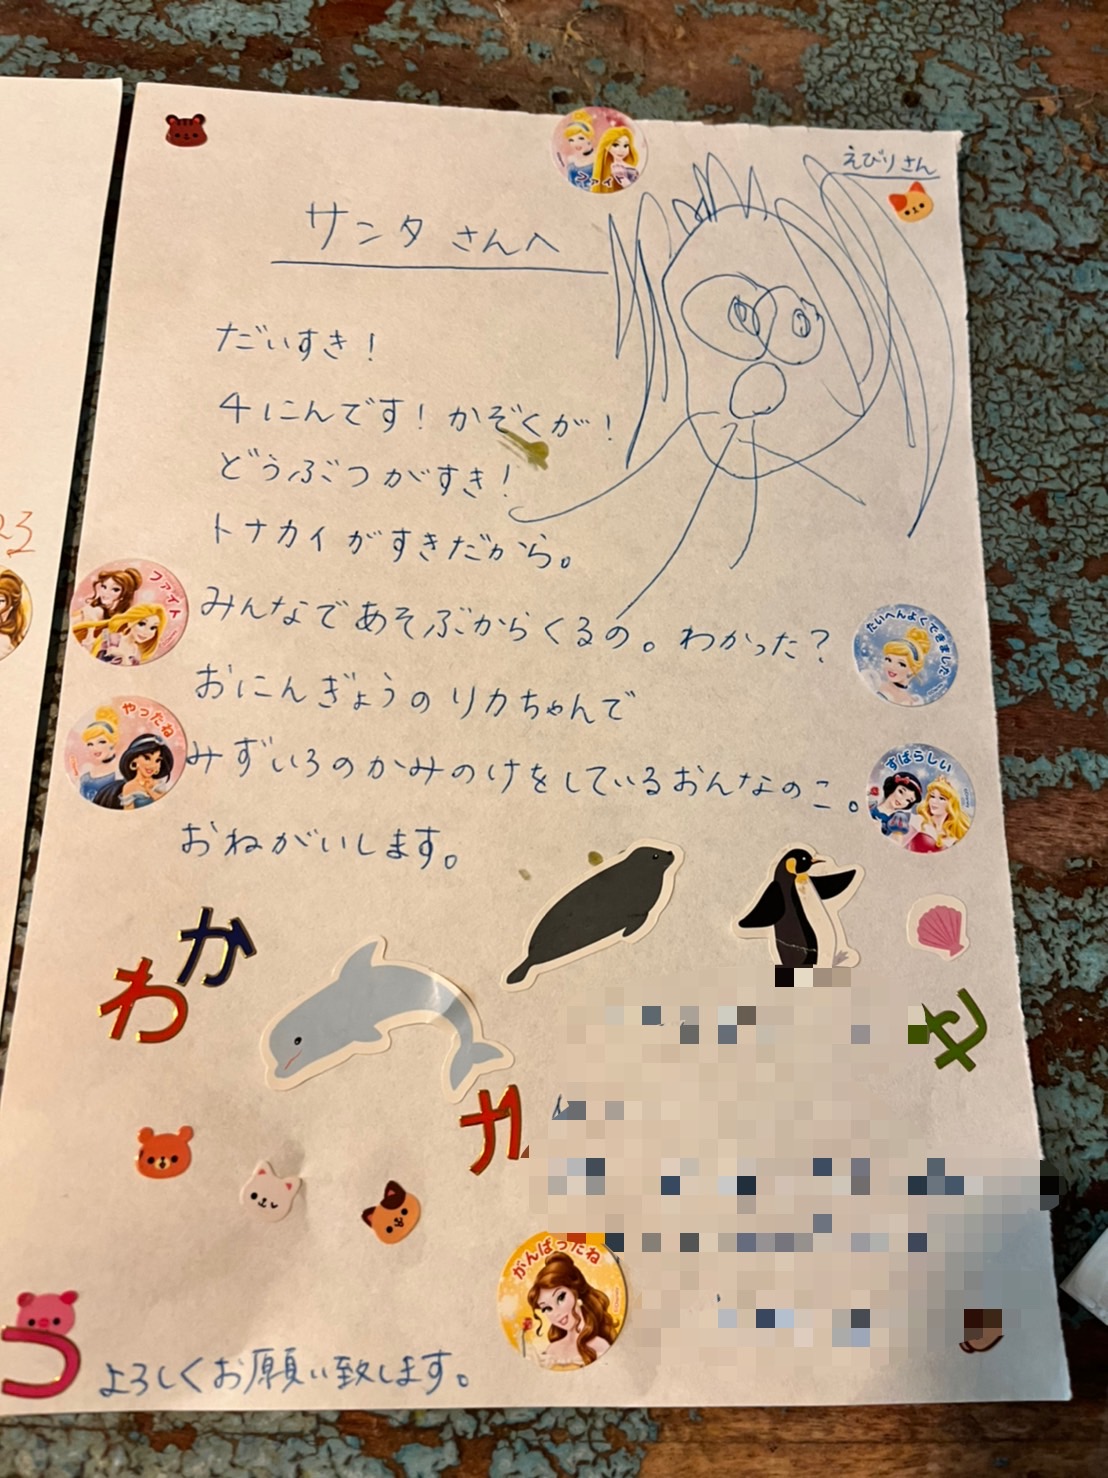 えびりさん
ファイト
サンタさんへ
だいすき！
4にんです！かぞくが！
どうぶつがすき！
トナカイがすきだから。
ファイト
みんなであそぶからくるの。わかった？
たいへんよくできました
おにんぎょうのリカちゃんで
やったね
みずいろのかみのけをしているおんなのこ。
すばらしい
おねがいします。
か
わ
せ
が
んばったね
つ
よろしくお願い致します。